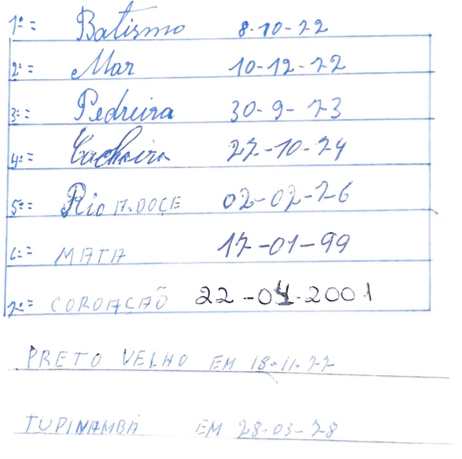 1º = Batismo 8-10-72
2º = Mar 10-12-72
3º = Pedreira 30-9-73
4º = Cachoeira 27-10-74
5º = Rio A. DOCE 02-02-76
6º = MATA 17-01-99
7º = COROAÇÃO 22-04-2001
PRETO VELHO EM 18-11-77
TUPINAMBÁ EM 28-03-78